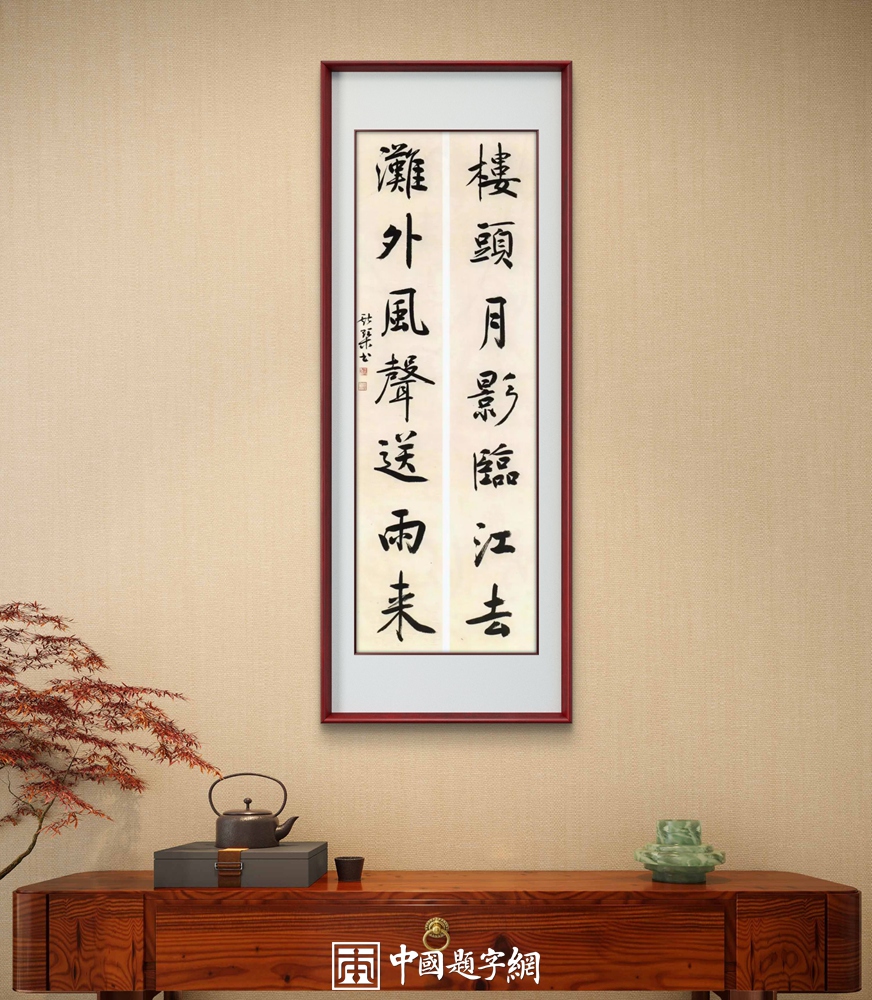 樓頭月影臨江去
灘外風聲送雨来
中國題字網